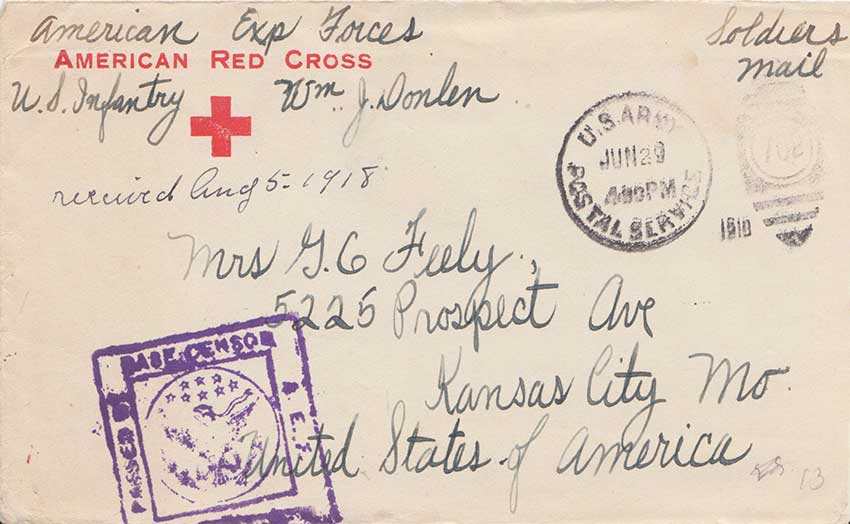 American Exp Forces
Soldiers
Mail
AMERICAN RED CROSS
U.S. Infantry Wm. J. Donlen
received Aug 5-1918
U.S. ARMY
JUN 29
4 PM
POSTAL SERVICE
702
Mrs G. C Feely,
5225 Prospect Ave
Kansas City Mo.
United States of America
PASSED BY
BASE CENSOR
A.E.F.
13